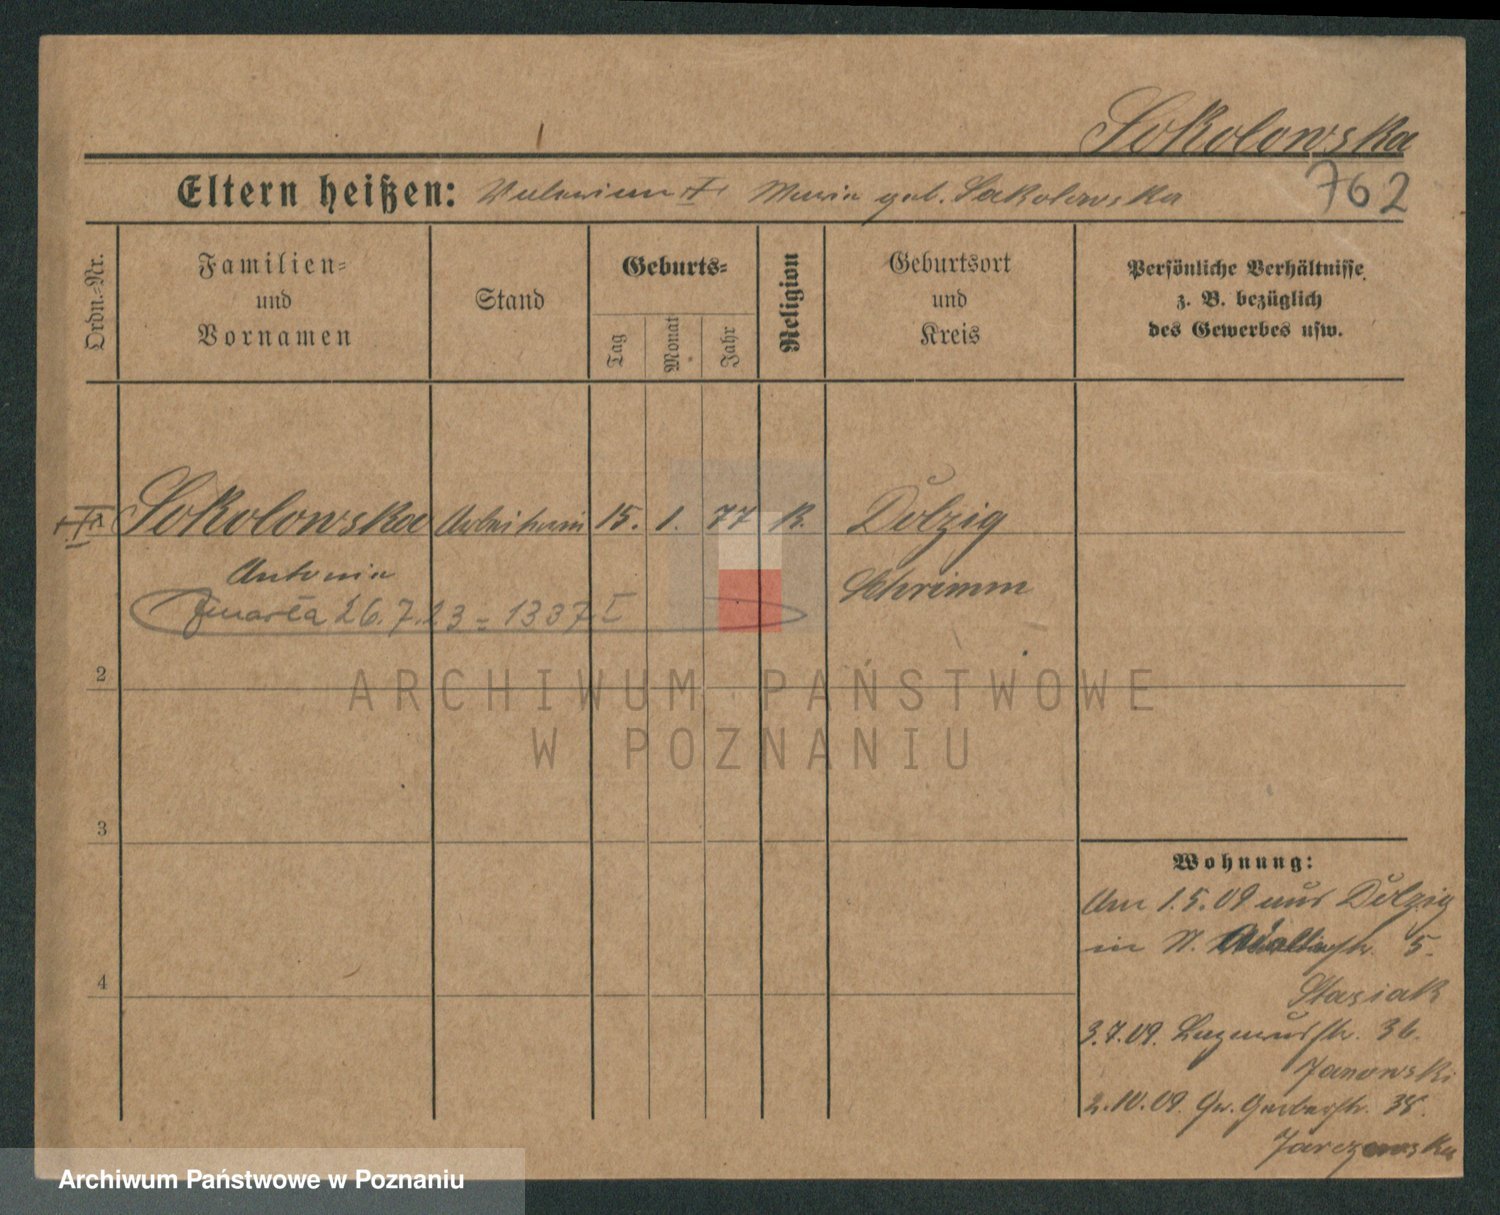 Sokolowska
762
Eltern heißen: Valerian † Maria geb. Sakolowska
Ordn.-Nr.
Familien-
und
Vornamen
Stand
Geburts-
Tag
Monat
Jahr
Religion
Geburtsort
und
Kreis
Persönliche Verhältnisse
z. B. bezüglich
des Gewerbes usw.
Sokolowska Arbeiterin 15. 1. 77 K. Dolzig
Antonia Schrimm
Zmarła 26.7.23 = 1337 I
2
ARCHIWUM PAŃSTWOWE
W POZNANIU
3
4
Wohnung:
Am 1.5.09 aus Dolzig
in 5.
Stasiak
3.7.09. 36.
Janowski
2.10.09. Gr. Gerberstr. 38.
Jarczewska
Archiwum Państwowe w Poznaniu